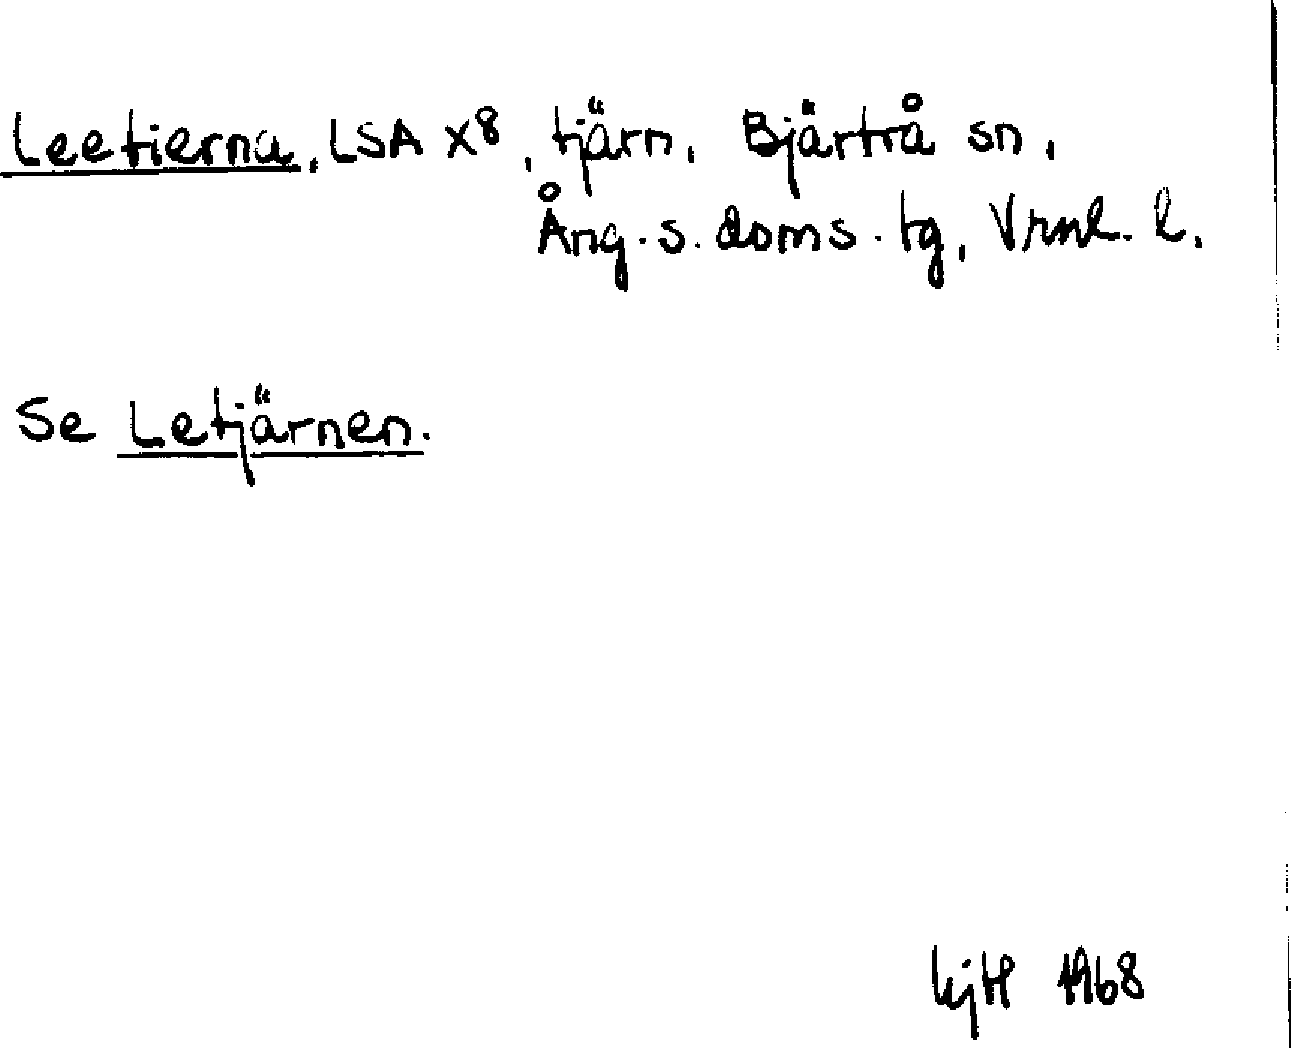 Leetierna, LSA X8, tjärn, Bjärtrå sn,
Ång. s. doms. tg, Vrnl. l.
Se Letjärnen.
1968